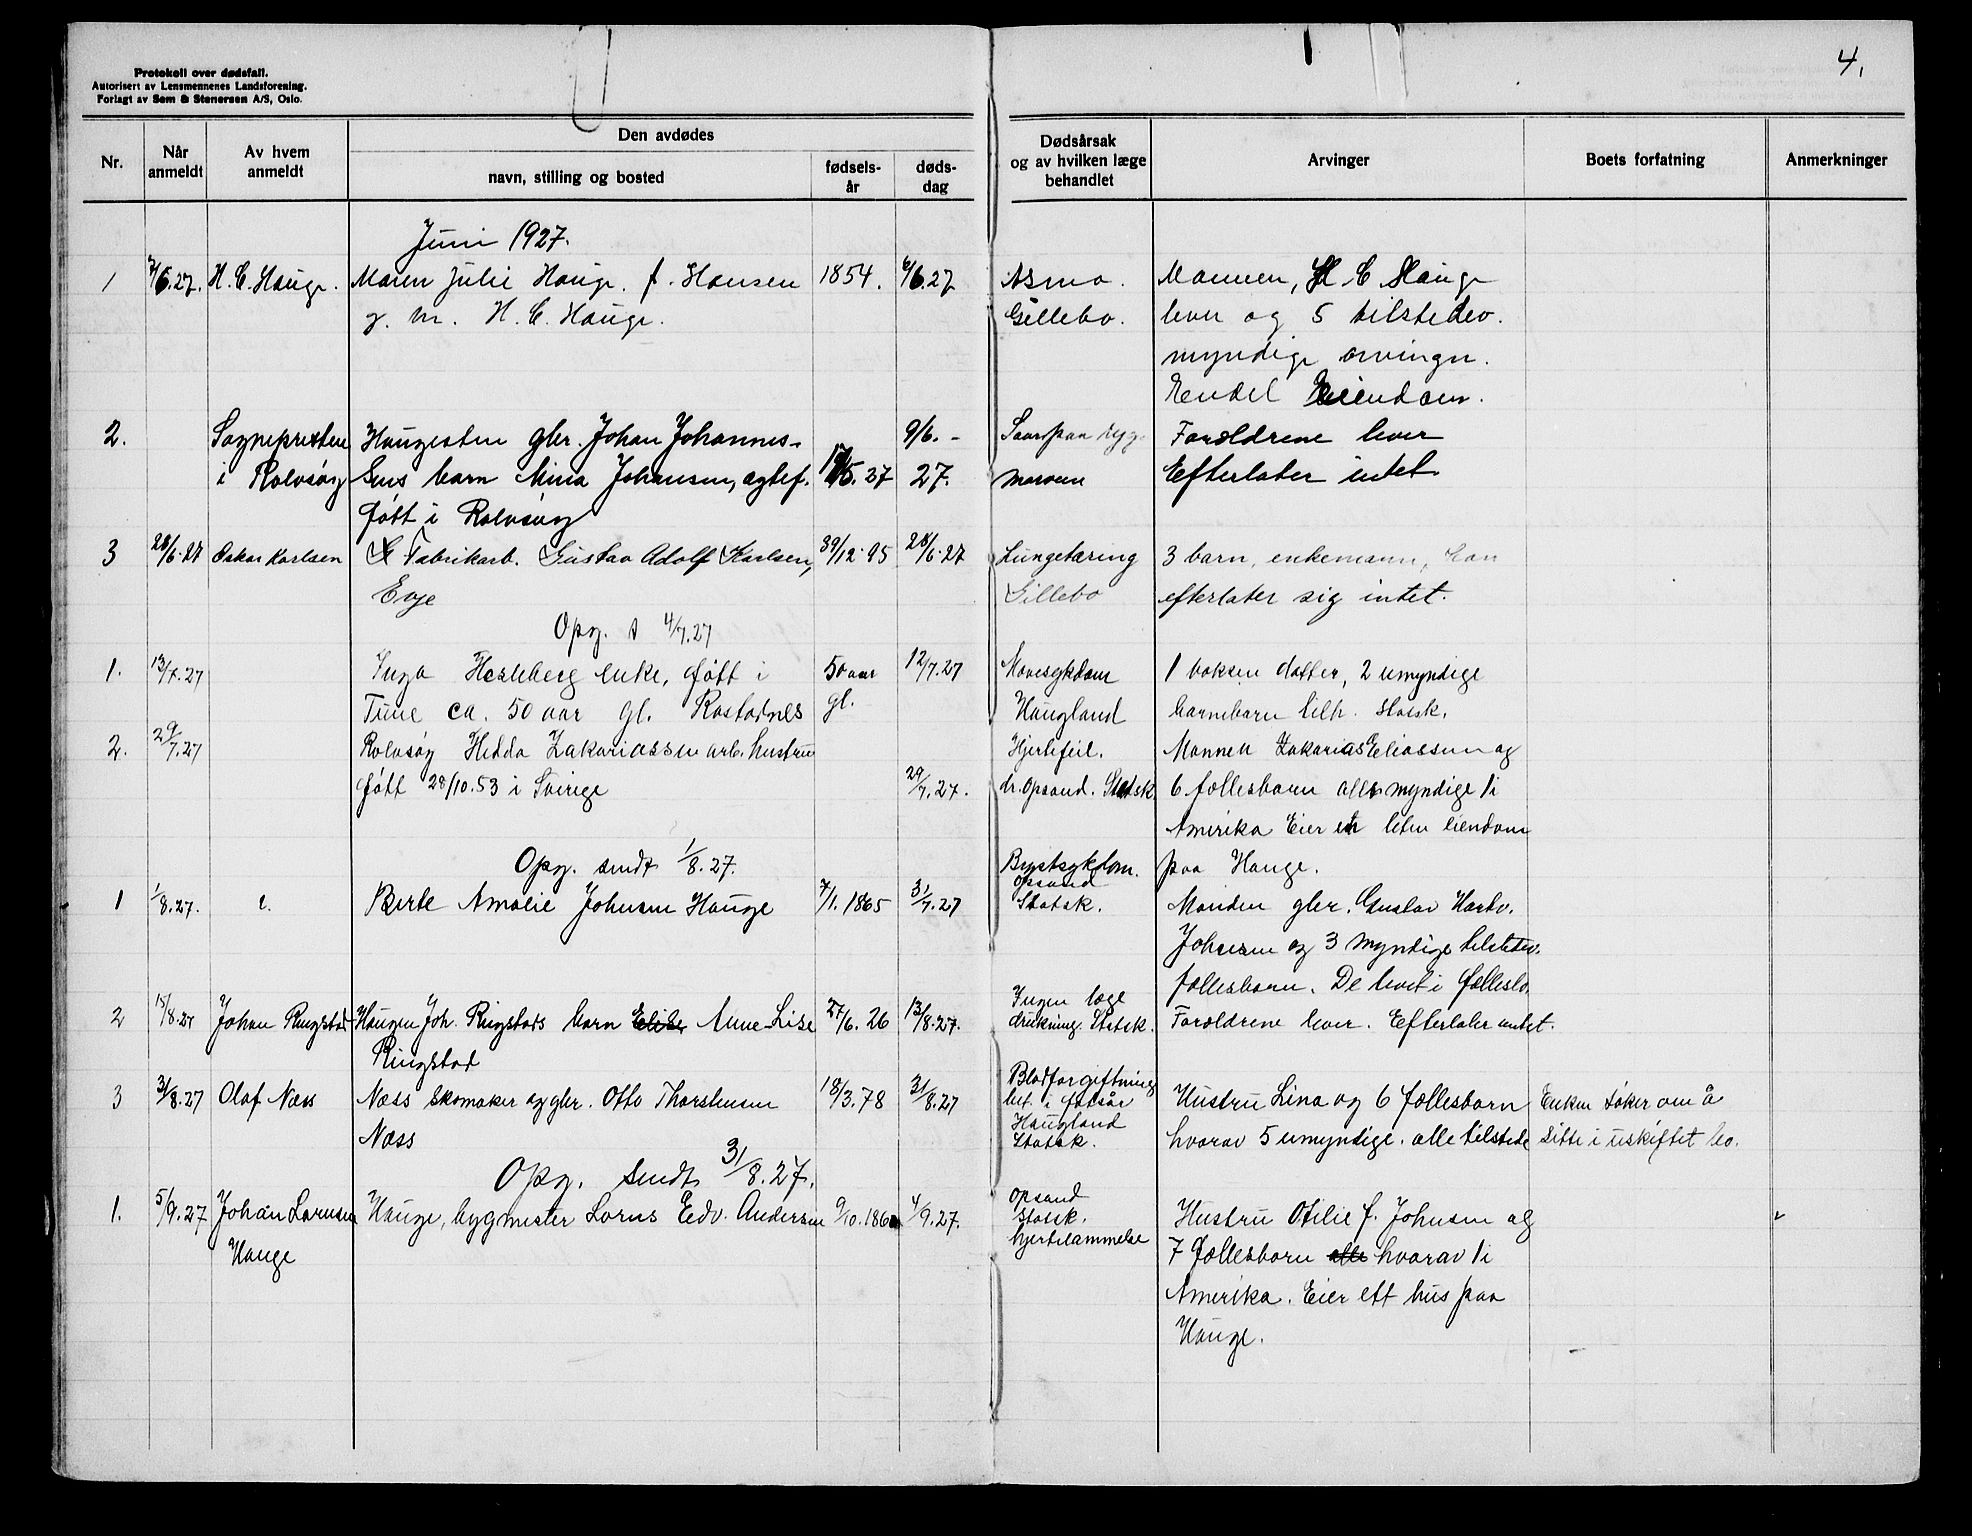 4.
Protokoll over dødsfall.
Autorisert av Lensmennenes Landsforening.
Forlagt av Sem & Stenersen A/S, Oslo.
Nr.
Når anmeldt
Av hvem anmeldt
Den avdødes
navn, stilling og bosted
fødsels-år
døds-dag
Dødsårsak og av hvilken læge behandlet
Arvinger
Boets forfatning
Anmerkninger
Juni 1927.
1 7/6.27. H. C. Hauge. Maren Julie Hauge. f. Hansen 1854. 6/6.27 Asma. Mannen, H C Hauge
g. m. H. C. Hauge. Gillebo. lever og 5 tilstedev.
myndige arvinger.
Endel Eiendom.
2. Sognepresten Haugesten gbr. Johan Johannes- 9/6. - Foreldrene lever
i Rolvsøy sens barn Mina Johansen, egtef. 5.27 27. Efterlater intet.
født i Rolvsøy
3 28/6.27 Oskar Karlsen Fabrikarb. Gustav Adolf Karlsen, 30/12.95 28/6.27 Lungetæring 3 barn, enkemann, han
Evje Gillebo efterlater sig intet.
Opg. s 4/7.27
1. 13/7.27 Inga Hasleberg enke, født i 50 aar 12/7.27 Mavesykdom 1 voksen datter, 2 umyndige
Tune ca. 50 aar gl. Rostadnes gl. Haugland barnebarn tilh. Statsk.
2. 29/7.27 Rolvsøy Hedda Zakariassen arb. hustru Hjertefeil. Mannen Zakarias Eliassen og
født 28/10.53 i Sverige 29/7.27. dr. Opsand. Statsk. 6 fællesbarn alle myndige 1 i
Amerika Eier en liten eiendom
Opg. sendt 1/8.27. Brystsykdom. paa Hauge.
1 1/8.27. Berte Amalie Johnsen Hauge 7/1.1865 31/7.27 Opsand Statsk. Manden gbr. Gustav Hartv.
Johnsen og 3 myndige tilstedev.
fællesbarn. De levet i fællesbo.
2 15/8.27 Johan Ringstad Haugen Joh. Ringstads barn Anne-Lise 27/6.26 13/8.27. Ingen læge drukning. Statsk. Foreldrene lever. Efterlater intet.
Ringstad
3 31/8.27 Olaf Næss Næss skomaker og gbr. Otto Thorstensen 18/3.78 31/8.27 Blodforgiftning Hustru Lina og 6 fællesbarn Enken søker om å
Næss i fotsår Haugland Statsk. hvorav 5 umyndige. alle tilstede sitte i uskiftet bo.
Opg. sendt 31/8.27.
1. 5/9.27 Johan Larensen Hauge, bygmester Lorns Edv. Andersen 9/10.1860 4/9.27. Opsand Statsk. Hustru Otilie f. Johnsen og
Hauge hjertelammelse 7 fællesbarn alle hvorav 1 i
Amerika. Eier ett hus paa
Hauge.